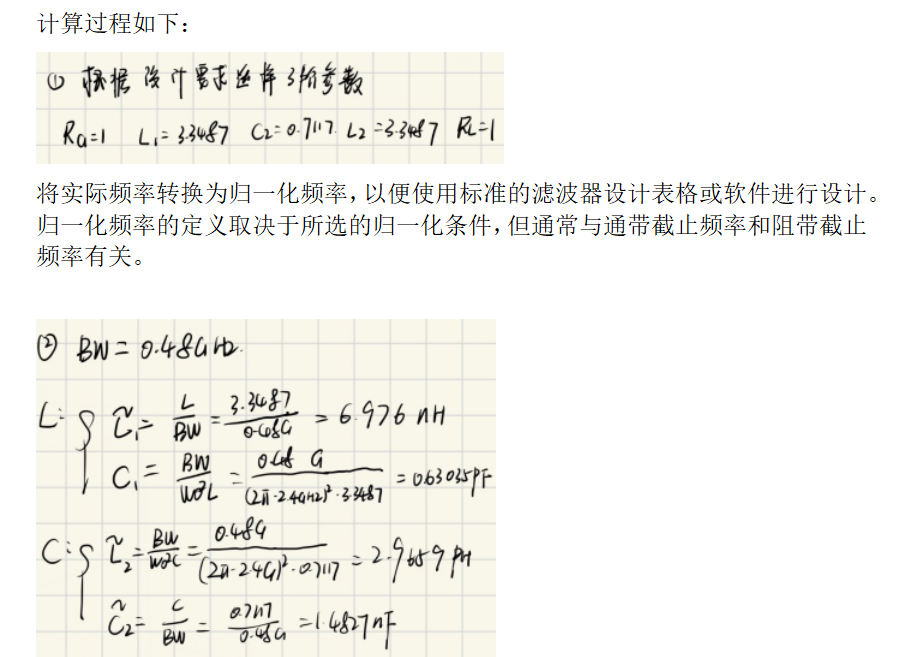 计算过程如下：
① 根据设计要求选择3阶参数
RG=1 L₁=3.3487 C₂=0.7117 L₂=3.3487 RL=1
将实际频率转换为归一化频率，以便使用标准的滤波器设计表格或软件进行设计。
归一化频率的定义取决于所选的归一化条件，但通常与通带截止频率和阻带截止
频率有关。
② BW=0.48GHz.
L: { L̃₁= L/BW = 3.3487/0.48G = 6.976 nH
C₁= BW/W₀²L = 0.48 G/(2π·2.4GHz)²·3.3487 = 0.63035pF
C: { L̃₂= BW/W₀²C = 0.48G/(2π·2.4G)²·0.7117 = 2.9659 pH
C̃₂= C/BW = 0.7117/0.48G =1.4827nF